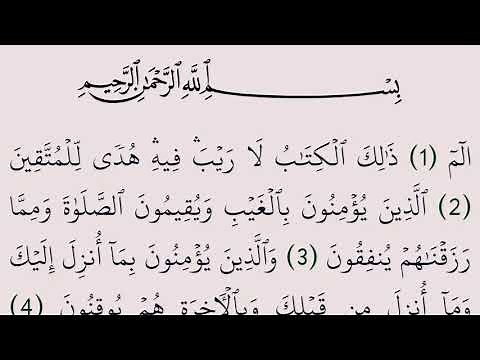 بِسْمِ اللَّهِ الرَّحْمَٰنِ الرَّحِيمِ
الٓمٓ (1) ذَٰلِكَ ٱلْكِتَٰبُ لَا رَيْبَ ۛ فِيهِ ۛ هُدًى لِّلْمُتَّقِينَ
(2) ٱلَّذِينَ يُؤْمِنُونَ بِٱلْغَيْبِ وَيُقِيمُونَ ٱلصَّلَوٰةَ وَمِمَّا
رَزَقْنَٰهُمْ يُنفِقُونَ (3) وَٱلَّذِينَ يُؤْمِنُونَ بِمَآ أُنزِلَ إِلَيْكَ
وَمَآ أُنزِلَ مِن قَبْلِكَ وَبِٱلْءَاخِرَةِ هُمْ يُوقِنُونَ (4)